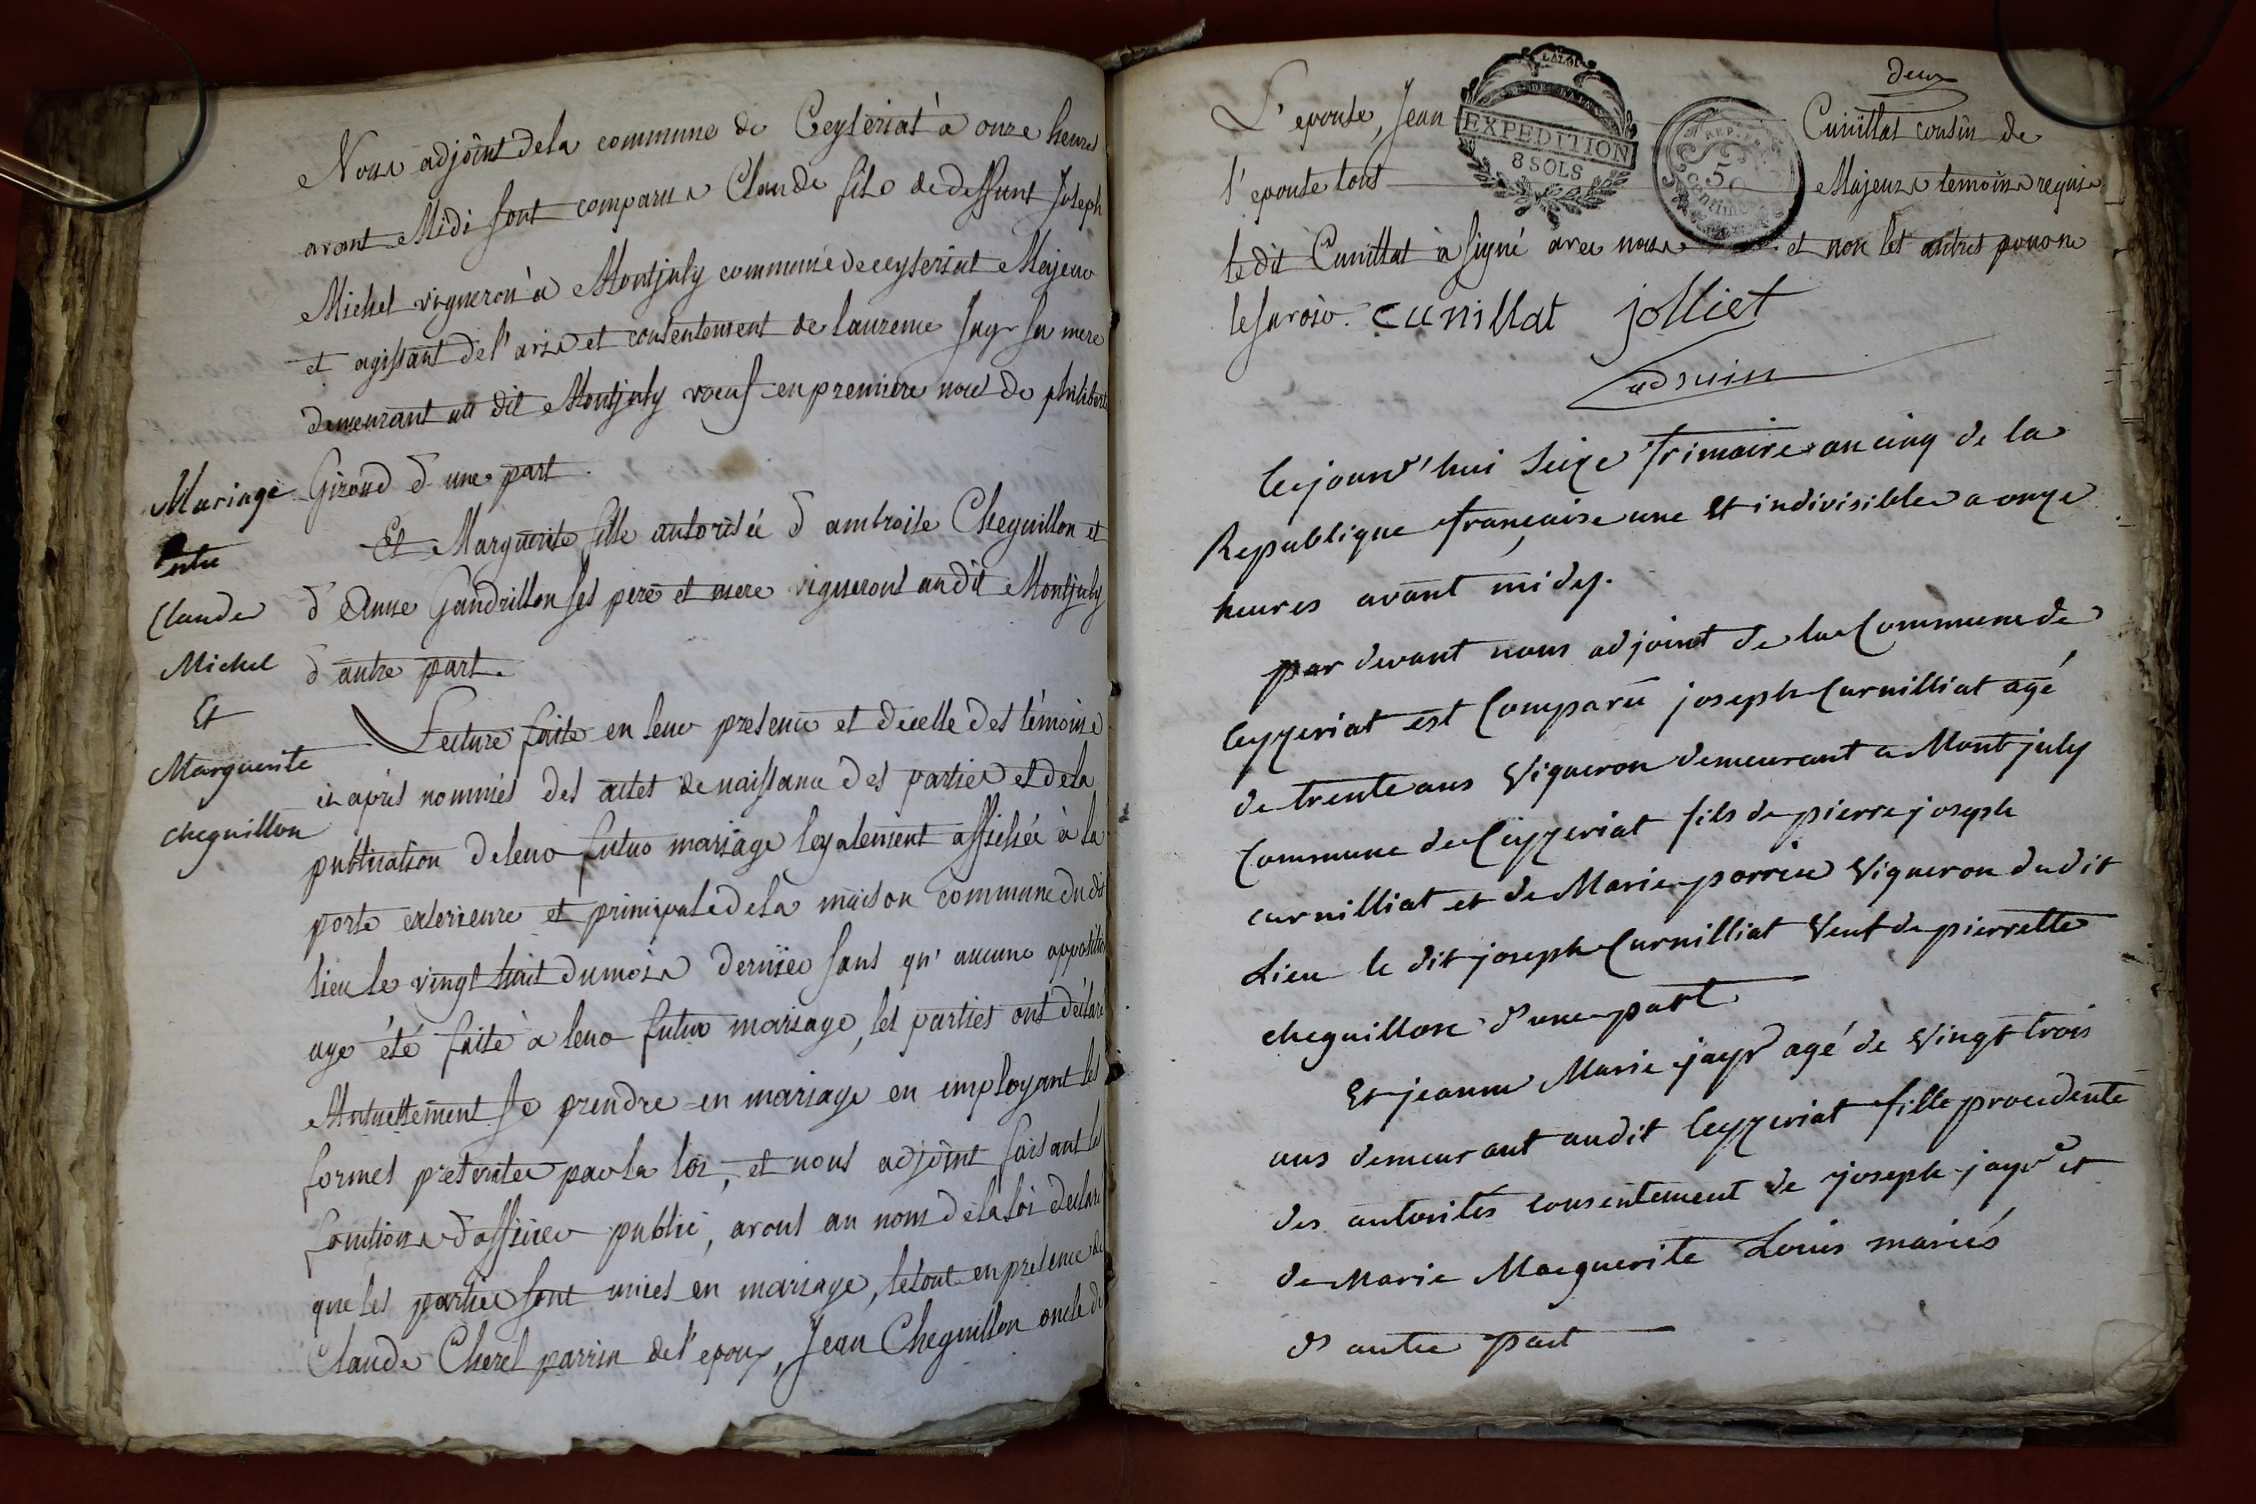 Nous adjoint de la commune de Ceyseriat à onze heures
avant Midi sont comparus Claude fils de deffunt Joseph
Michel vigneron à Montjuly commune de ceyseriat Majeur
et agissant de l'avis et consentement de laurence Jayr sa mere
demeurant au dit Montjuly vœuf en premiere noce de philiberte
Giroud d'une part.
Et Marguerite fille autorisée d'ambroise Cheguillon et
d'Anne Gandrillon ses pere et mere vignerons audit Montjuly
d'autre part.
Lecture faite en leur presence et de celle des témoins
ci après nommés des actes de naissance des parties et de la
publication de leur futur mariage legalement affichée à la
porte exterieure et principale de la maison commune du dit
lieu le vingt huit du mois dernier sans qu'aucune opposition
aye été faite à leur futur mariage, les parties ont déclaré
Mutuellement se prendre en mariage en employant les
formes prescrites par la loi, et nous adjoint faisant les
fonctions d'officier public, avons au nom de la loi declaré
que les parties sont unies en mariage, le tout en présence de
Claude Cherel parrin de l'epoux, Jean Cheguillon oncle de
Mariage
Entre
Claude
Michel
Et
Marguerite
cheguillon
deux
L'epouse, Jean Cunillat cousin de
l'epouse tous Majeurs temoins requis
le dit Cunillat à signé avec nous et non les autres pour ne
le savoir. cunillat jolliet
adjoint
LA LOI
EXPEDITION
8 SOLS
REP. FRA.
50
centimes
Cejourd'hui Seize frimaire an cinq de la
Republique française une Et indivisible a onze
heures avant midy.
par devant nous adjoint de la Commune de
Ceyzeriat est Comparu joseph Curnilliat agé
de trente ans Vigneron demeurant a Montjuly
Commune de Ceyzeriat fils de pierre joseph
curnilliat et de Marie perrin Vigneron dudit
Lieu le dit joseph Curnilliat Veuf de pierrette
cheguillon d'une part
Et jeanne Marie jayr agé de Vingt trois
ans demeurant audit Ceyzeriat fille procedente
des autorités consentement de joseph jayr et
de Marie Marguerite Louis mariés
d'autre part